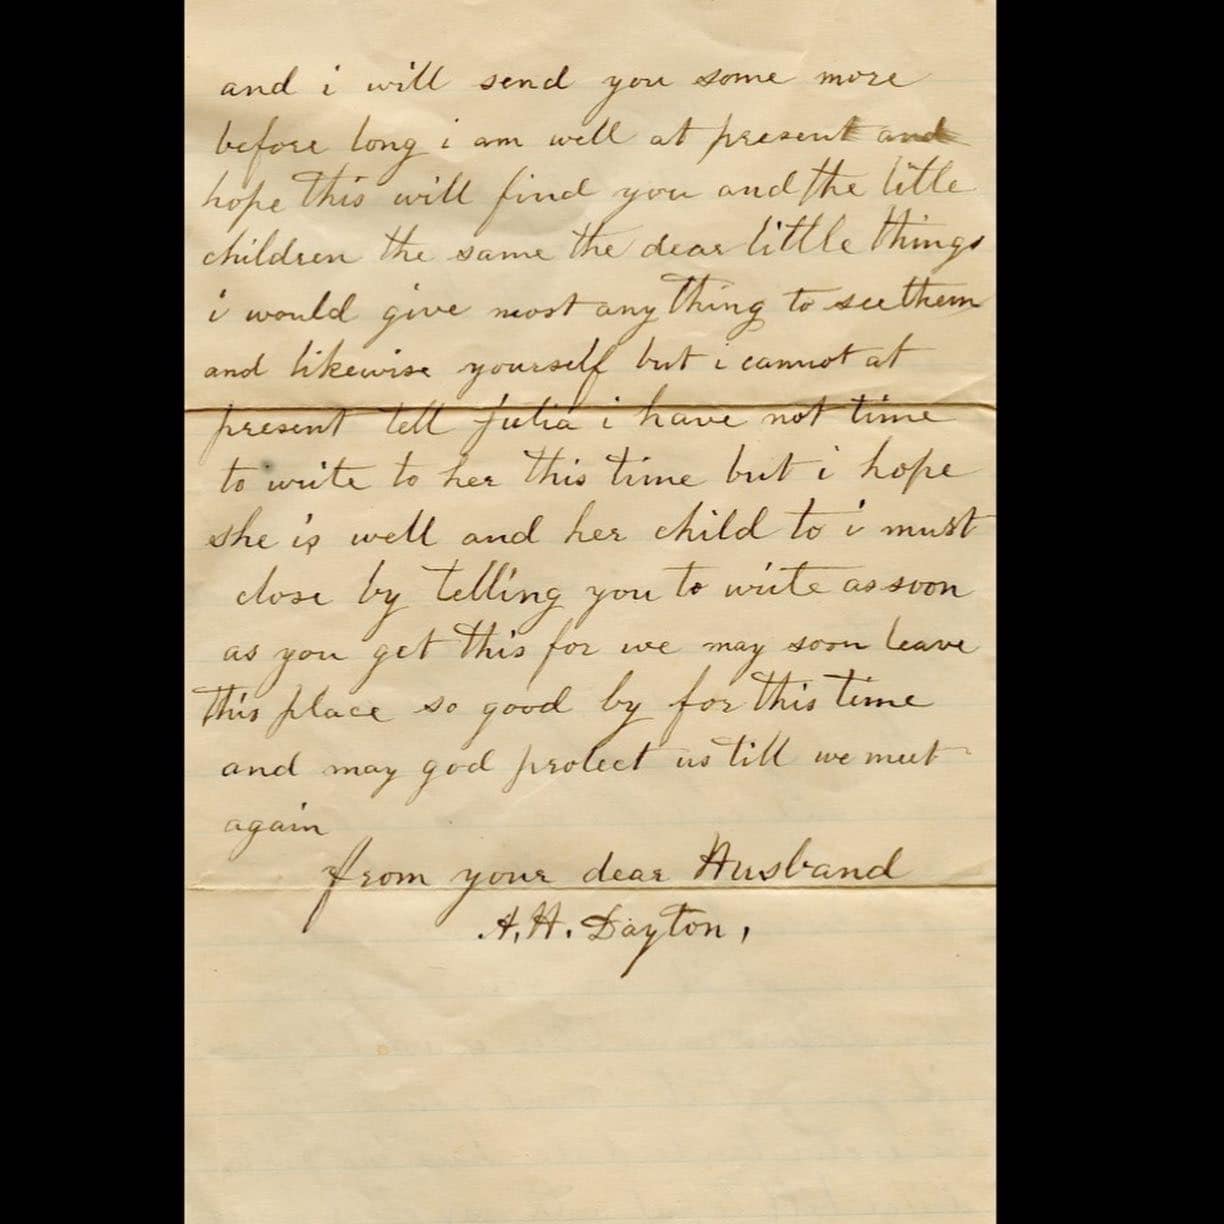 and i will send you some more
before long i am well at present and
hope this will find you and the little
children the same the dear little things
i would give most any thing to see them
and likewise yourself but i cannot at
present tell Julia i have not time
to write to her this time but i hope
she is well and her child to i must
close by telling you to write as soon
as you get this for we may soon leave
this place so good by for this time
and may god protect us till we meet
again
from your dear Husband
A. H. Dayton,